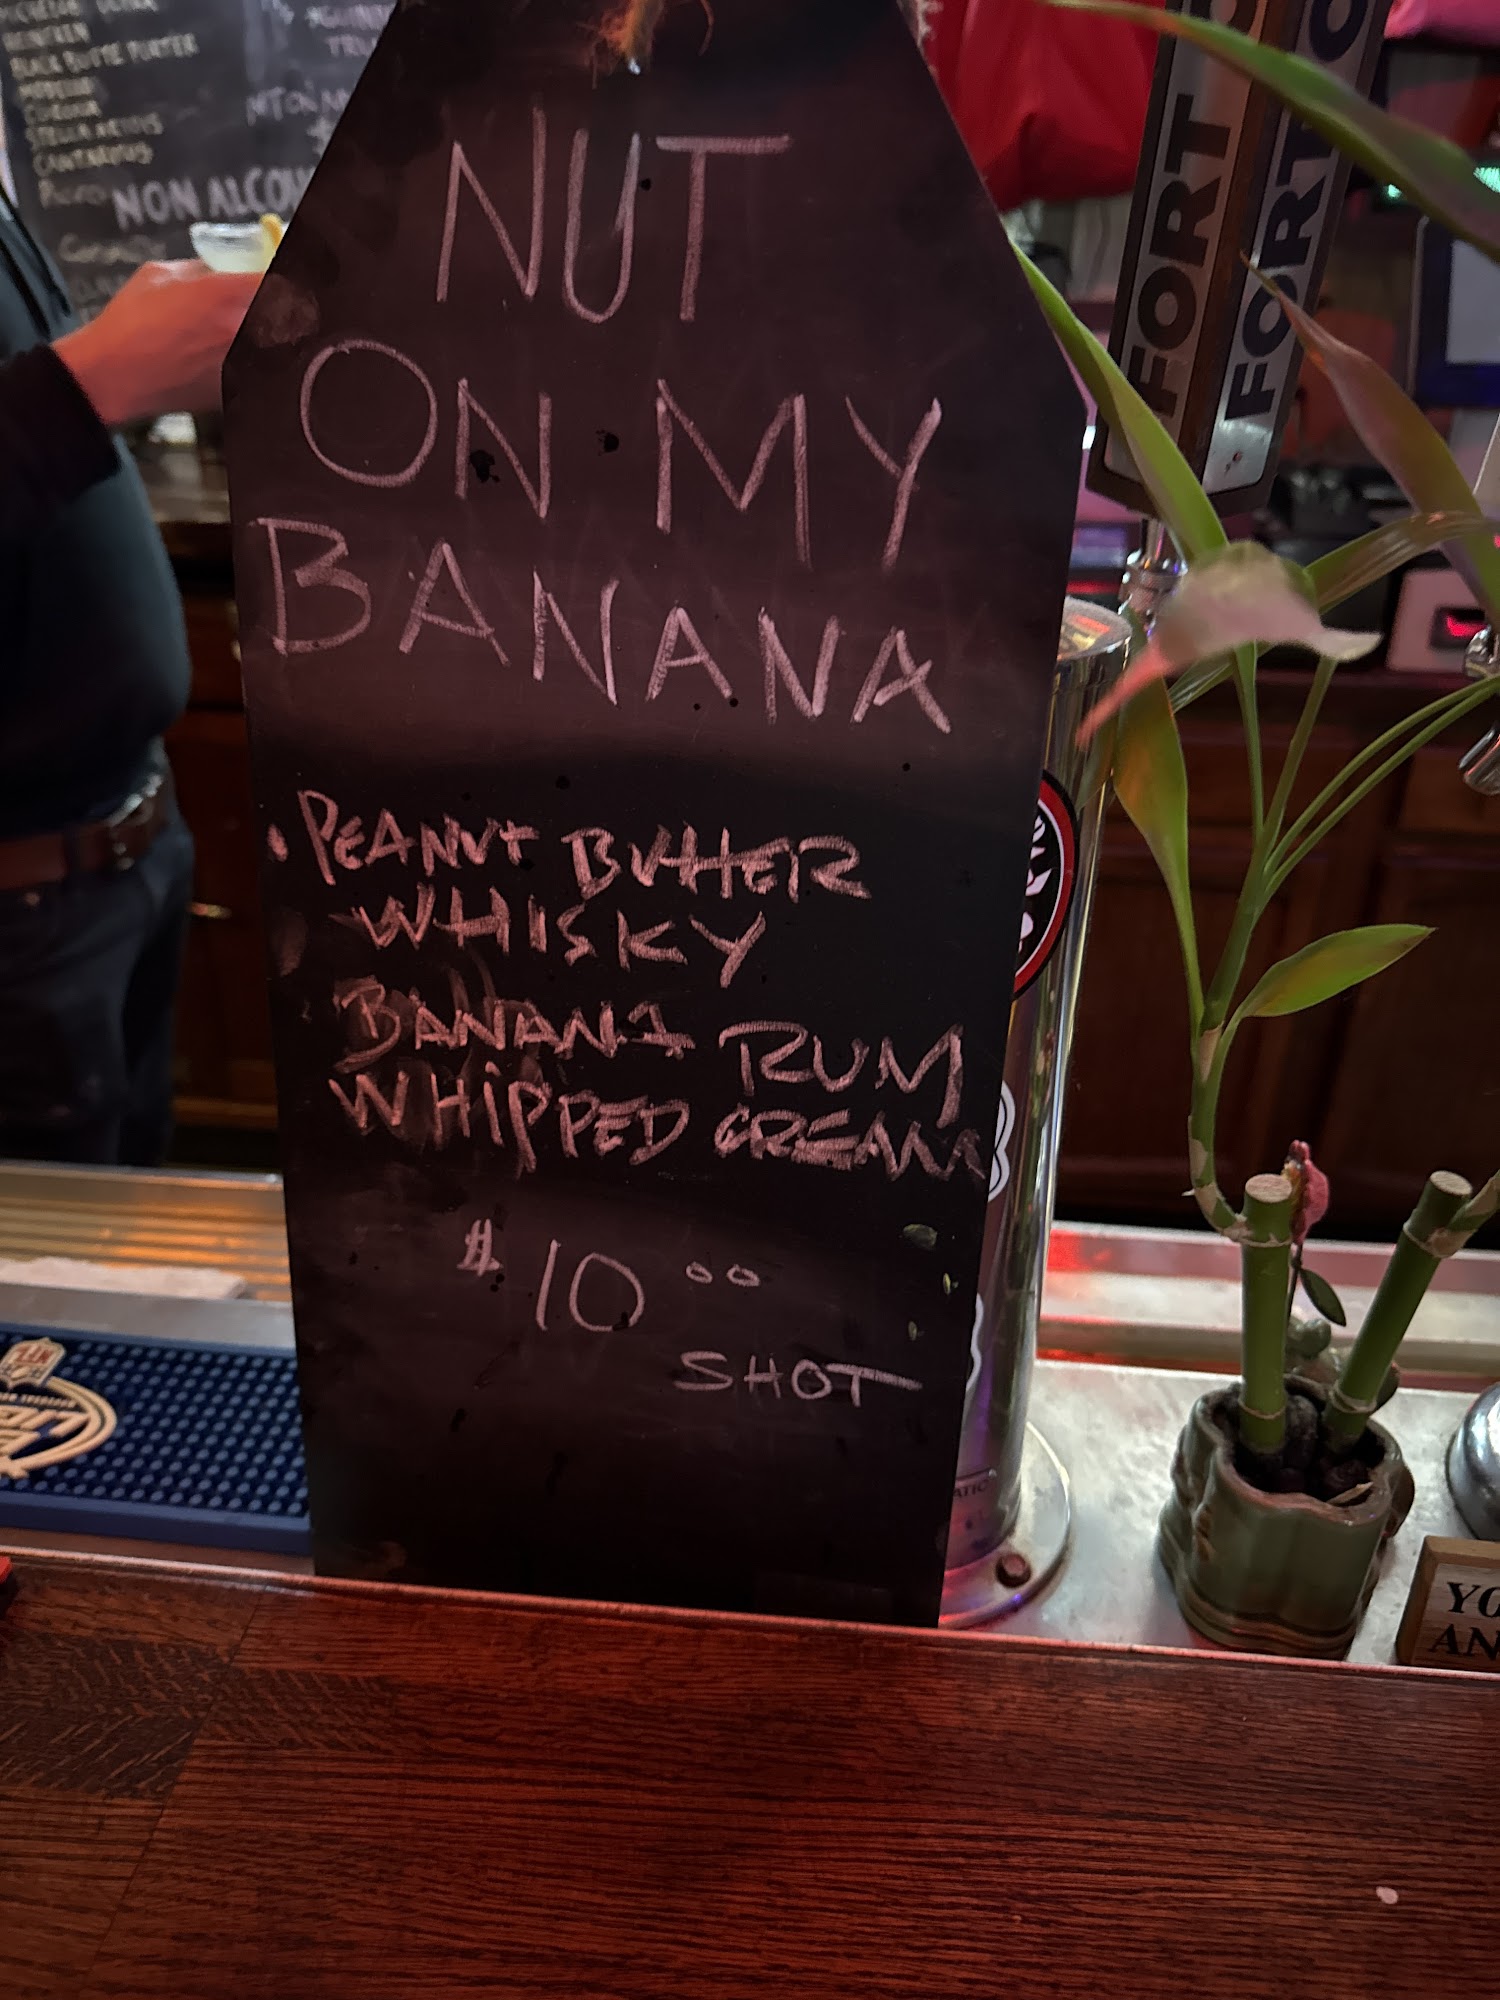 NUT
ON MY
BANANA
PEANUT BUTTER
WHISKY
BANANA RUM
WHIPPED CREAM
$ 10 00
SHOT
BLACK BUTTE PORTER
CORONA
STELLA ARTOIS
NON ALCOH
FORT
FORT
NFL
YO
AN